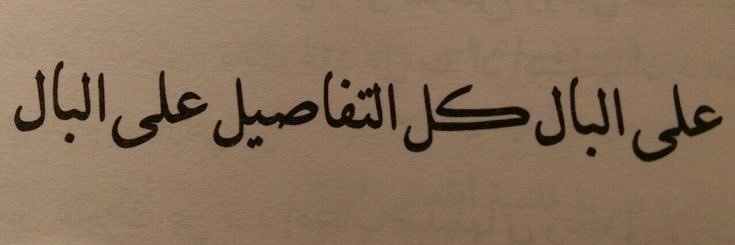 على البال كل التفاصيل على البال